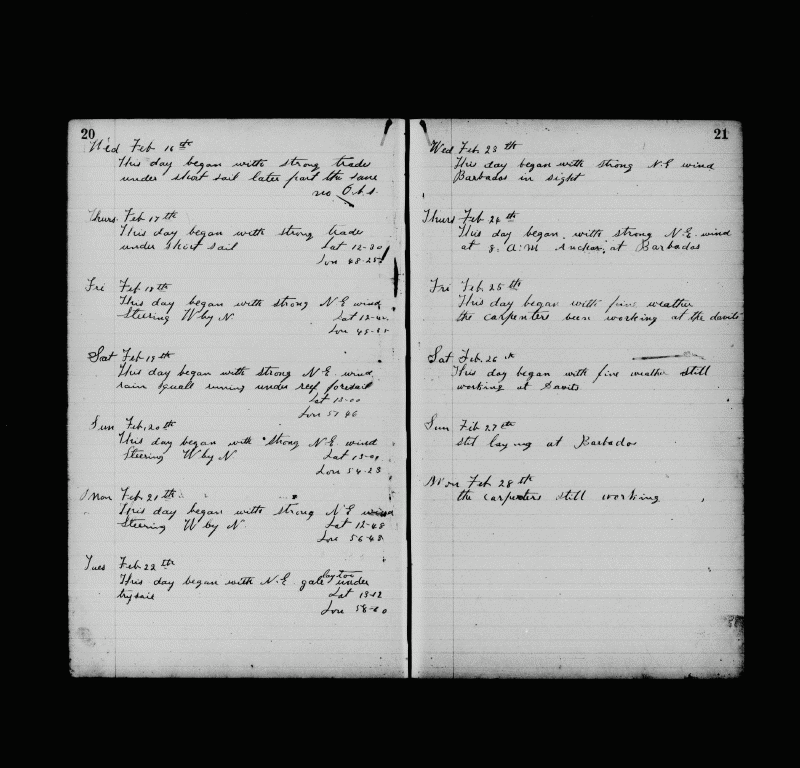 20
Wed Feb 16th
This day began with strong trade
under short sail later part the same
no Obs.
Thurs Feb 17th
This day began with strong trade
under short sail Lat 12-30
Lon 48-25
Fri Feb 18th
This day began with strong N E wind
Steering W by N Lat 12-
Lon
Sat Feb 19th
This day began with strong N.E. wind
rain squall running under reef foresail
Lat 13-00
Lon 51 46
Sun Feb, 20th
This day began with strong N.E. wind
Steering W by N Lat 13-
Lon 54-23
Mon Feb 21th
This day began with strong N E wind
Steering W by N. Lat 12-48
Lon 56-48
Tues Feb 22th
This day began with N.E. gale under
trysail Lat 13-12
Lon 58-
21
Wed Feb. 23th
This day began with strong N.E wind
Barbados in sight
Thurs Feb 24th
This day began with strong N.E. wind
at 8. A.M Anchor, at Barbados
Fri Feb 25th
This day began with fine weather
the carpenters been working at the davits
Sat Feb. 26th
This day began with fine weather still
working at Davits
Sun Feb 27th
still laying at Barbados
Mon Feb 28th
the carpenters still working